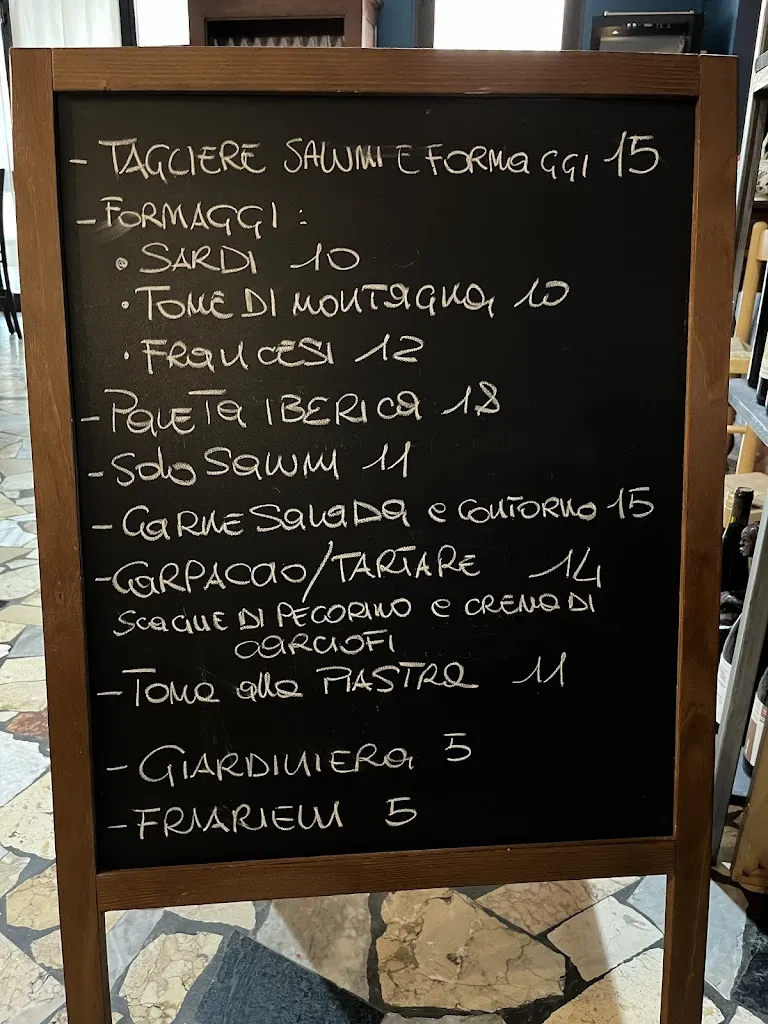 - TAGLIERE SALUMI E FORMAGGI 15
- FORMAGGI:
• SARDI 10
• TOME DI MONTAGNA 10
• FRANCESI 12
- PALETA IBERICA 18
- Solo SALUMI 11
- CARNE SALADA e CONTORNO 15
- CARPACCIO/TARTARE 14
SCAGLIE DI PECORINO e CREMA DI
CARCIOFI
- TOMA alla PIASTRA 11
- GIARDINIERA 5
- FRIARIELLI 5